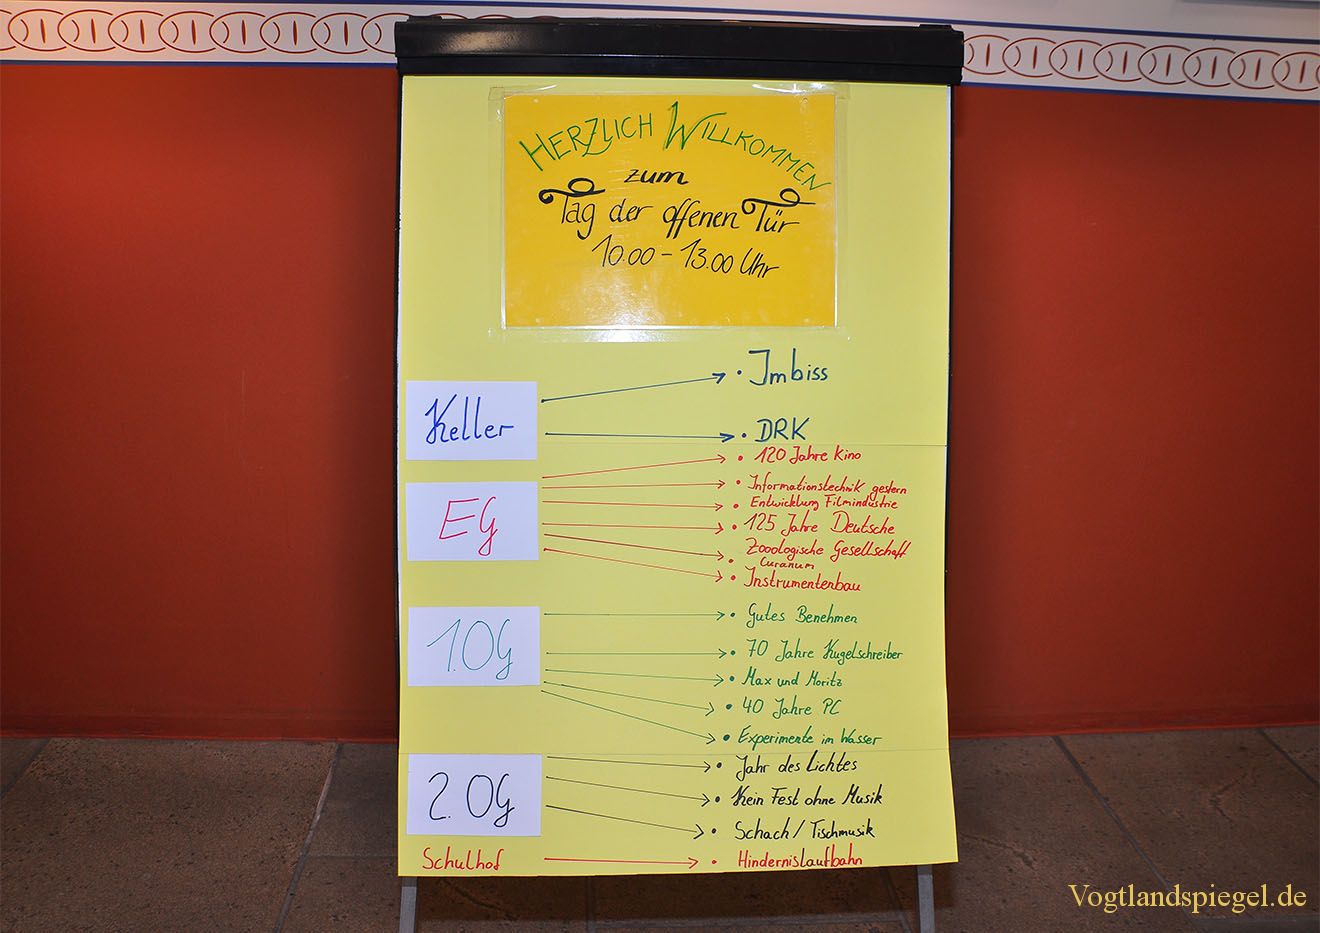 HERZLICH WILLKOMMEN
zum
Tag der offenen Tür
10.00 - 13.00 Uhr
Keller
• Imbiss
• DRK
EG
• 120 Jahre Kino
• Informationstechnik gestern
• Entwicklung Filmindustrie
• 125 Jahre Deutsche
Zooologische Gesellschaft
• Curanum
• Instrumentenbau
1.OG
• Gutes Benehmen
• 70 Jahre Kugelschreiber
• Max und Moritz
• 40 Jahre PC
• Experimente im Wasser
2.OG
• Jahr des Lichtes
• Kein Fest ohne Musik
• Schach / Tischmusik
Schulhof
• Hindernislaufbahn
Vogtlandspiegel.de